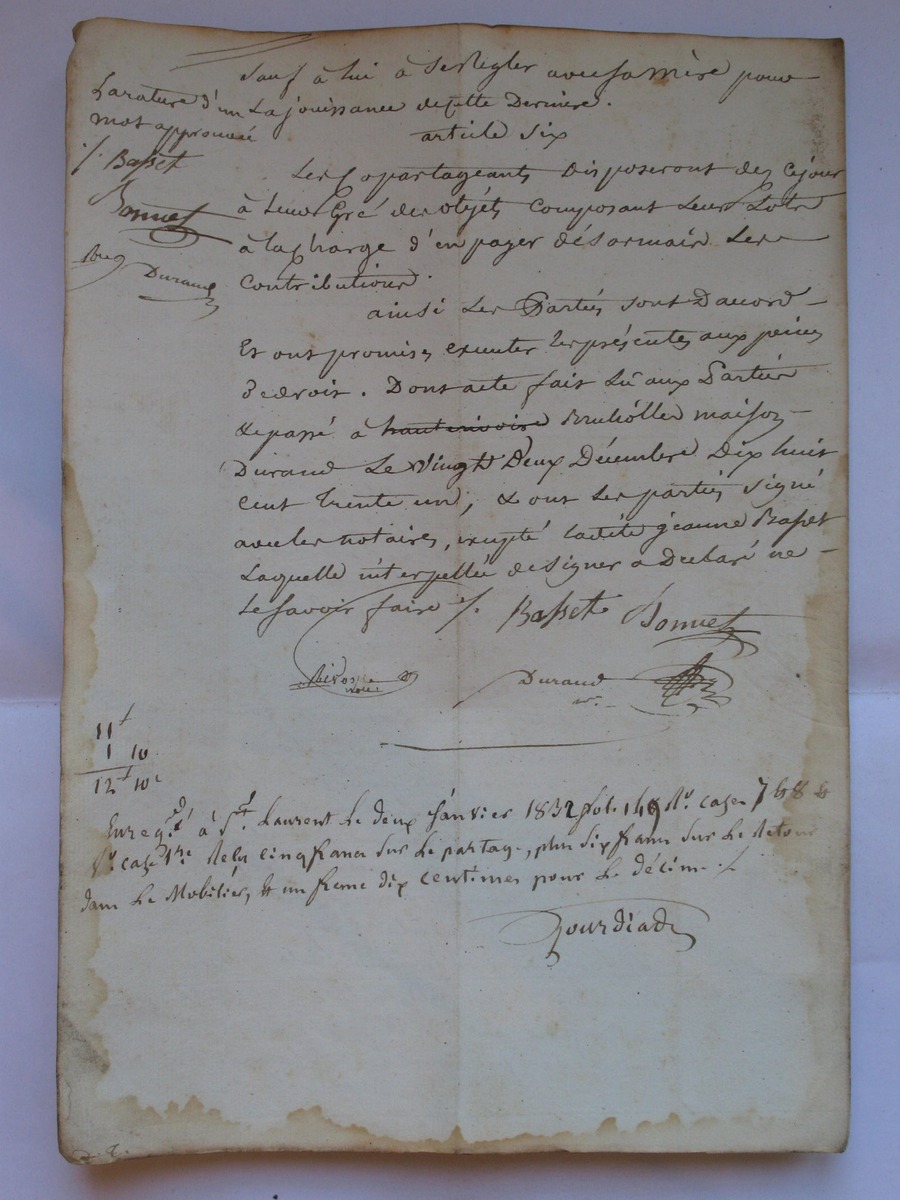 Sauf à lui à se Regler avec sa mère pour
La jouissance de cette Derniere.
article six
Les Copartageants Disposeront des Cejour
à Leur Gré des objéts Composant Leur Lots
à la Charge d'en payer désormais Les
Contributions.
ainsi Les Parties sont Daccord
Et ont promis executer les présentes aux peines
de droit. Dont acte fait Lu aux Parties
& passé à hauterivoire maison
Durand Le Vingt Deux Décembre Dix huit
cent trente un, & ont Les parties signé
avec les notaires, excepté ladite jeanne Basset
Laquelle interpellée de Signer a Declaré ne
Le Savoir faire ./.
Basset Bonnet
Durand
Larature d'un
mot approuvé
./. Basset
Bonnet
Durand
11f
1 10
12f 10c
Enregé à St Laurent Le deux Janvier 1832 fol. 149 Ro. cases 7 & 8 &
Vo. case 1re Reçu cinq francs sur Le partage, plus dix francs sur Le Retour
dans Le Mobilier, & un franc dix centimes pour Le décime ./.